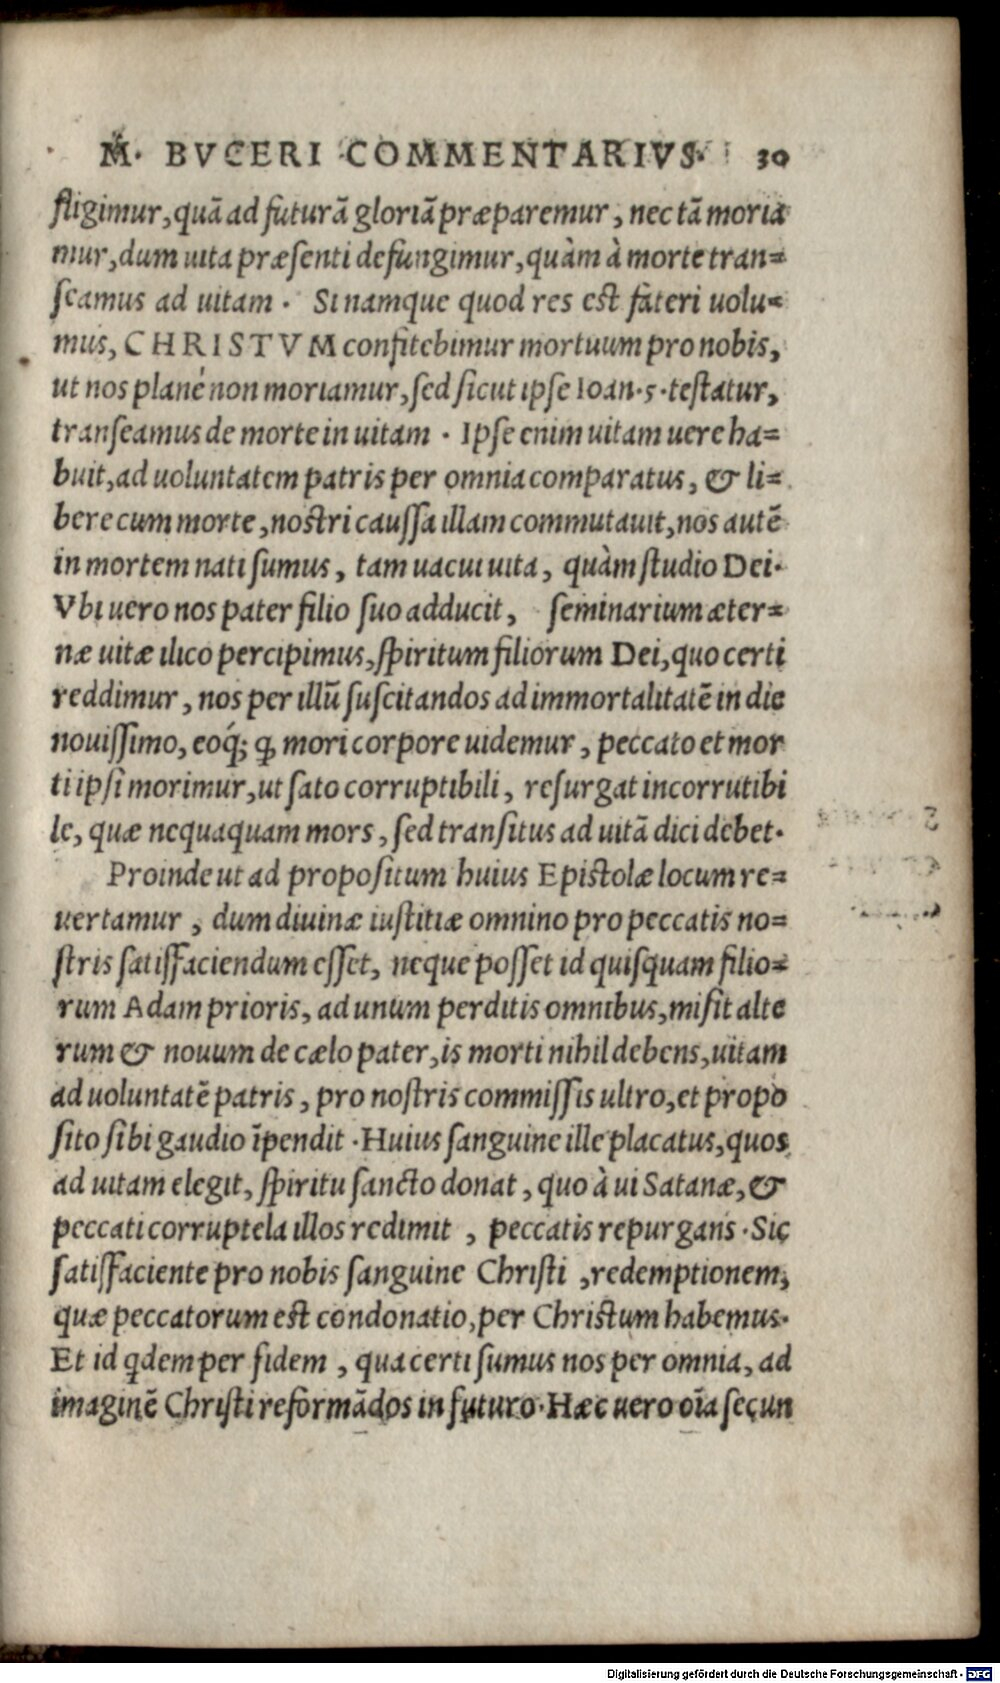 M. BVCERI COMMENTARIVS. 30
fligimur, quã ad futurã gloriã præparemur, nec tã moria
mur, dum uita præsenti defungimur, quàm à morte tran=
seamus ad uitam. Si namque quod res est fateri uolu=
mus, CHRISTVM confitebimur mortuum pro nobis,
ut nos planè non moriamur, sed sicut ipse Ioan. 5. testatur,
transeamus de morte in uitam. Ipse enim uitam uere ha=
buit, ad uoluntatem patris per omnia comparatus, & li=
bere cum morte, nostri caussa illam commutauit, nos autẽ
in mortem nati sumus, tam uacui uita, quàm studio Dei.
Vbi uero nos pater filio suo adducit, seminarium æter=
næ uitæ ilico percipimus, spiritum filiorum Dei, quo certi
reddimur, nos per illũ suscitandos ad immortalitatẽ in die
nouissimo, eoq́; ꝙ mori corpore uidemur, peccato et mor
ti ipsi morimur, ut sato corruptibili, resurgat incorrutibi
le, quæ nequaquam mors, sed transitus ad uitã dici debet.
Proinde ut ad propositum huius Epistolæ locum re=
uertamur, dum diuinæ iustitiæ omnino pro peccatis no=
stris satisfaciendum esset, neque posset id quisquam filio=
rum Adam prioris, ad unum perditis omnibus, misit alte
rum & nouum de cælo pater, is morti nihil debens, uitam
ad uoluntatẽ patris, pro nostris commissis ultro, et propo
sito sibi gaudio ĩpendit. Huius sanguine ille placatus, quos
ad uitam elegit, spiritu sancto donat, quo à ui Satanæ, &
peccati corruptela illos redimit, peccatis repurgans. Sic
satisfaciente pro nobis sanguine Christi, redemptionem,
quæ peccatorum est condonatio, per Christum habemus.
Et id qdem per fidem, qua certi sumus nos per omnia, ad
imaginẽ Christi reformãdos in futuro. Hæc uero oĩa secun
Digitalisierung gefördert durch die Deutsche Forschungsgemeinschaft - DFG